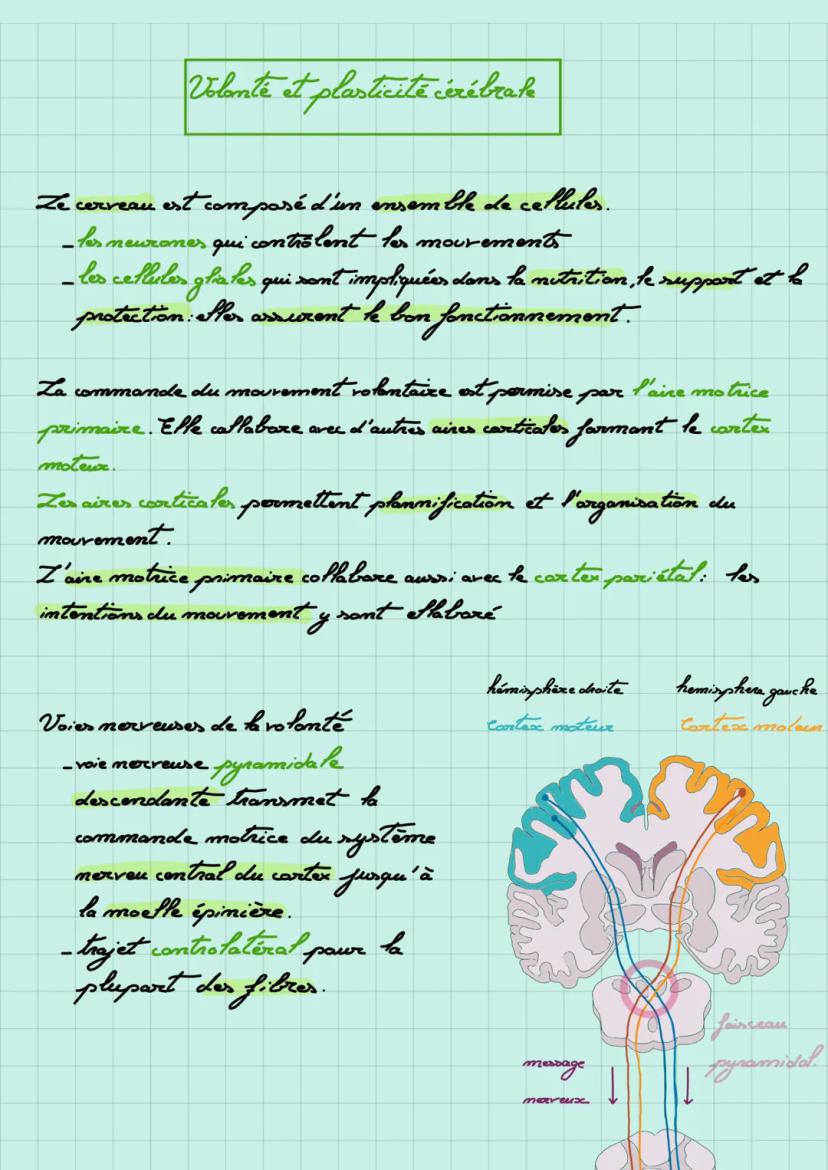 Volonté et plasticité cérébrale
Le cerveau est composé d'un ensemble de cellules.
- les neurones qui contrôlent les mouvements
- les cellules gliales qui sont impliquées dans la nutrition, le support et la
protection : elles assurent le bon fonctionnement.
La commande du mouvement volontaire est permise par l'aire motrice
primaire. Elle collabore avec d'autres aires corticales formant le cortex
moteur.
Les aires corticales permettent plannification et l'organisation du
mouvement.
L'aire motrice primaire collabore aussi avec le cortex pariétal : les
intentions du mouvement y sont ellaboré
hémisphère droite
hemisphere gauche
Cortex moteur
Cortex moteur
Voies nerveuses de la volonté
- voie nerveuse pyramidale
descendante transmet la
commande motrice du système
nerveu central du cortex jusqu'à
la moelle épinière.
- trajet controlatéral pour la
plupart des fibres.
faisceau
pyramidal.
message
nerveux